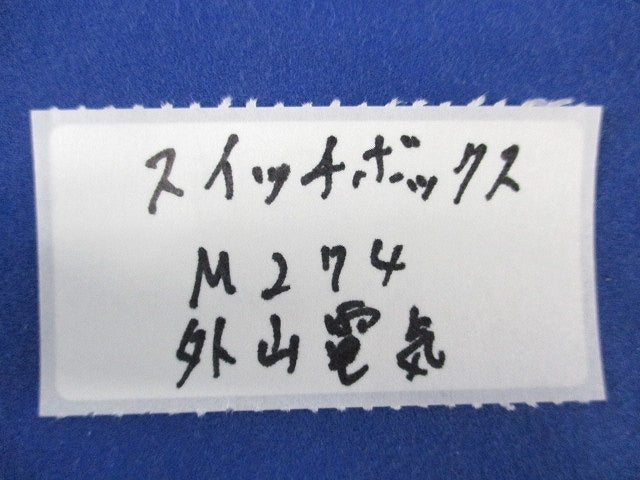 スイッチボックス
M274
外山電気